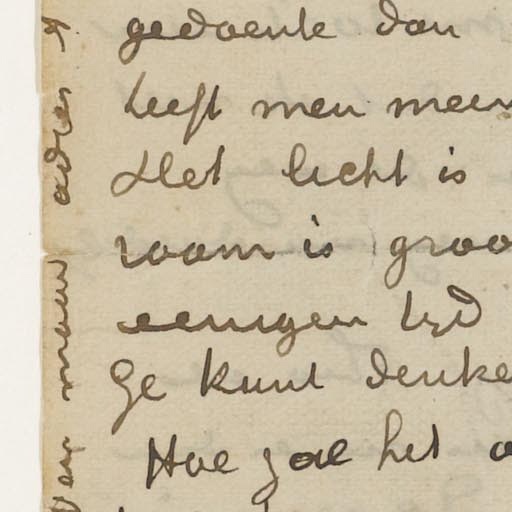 gedoente dan
heeft men meer
Het licht is
raam is groo
eenigen tyd
Ge kunt denke
Hoe zal het
adres
maar